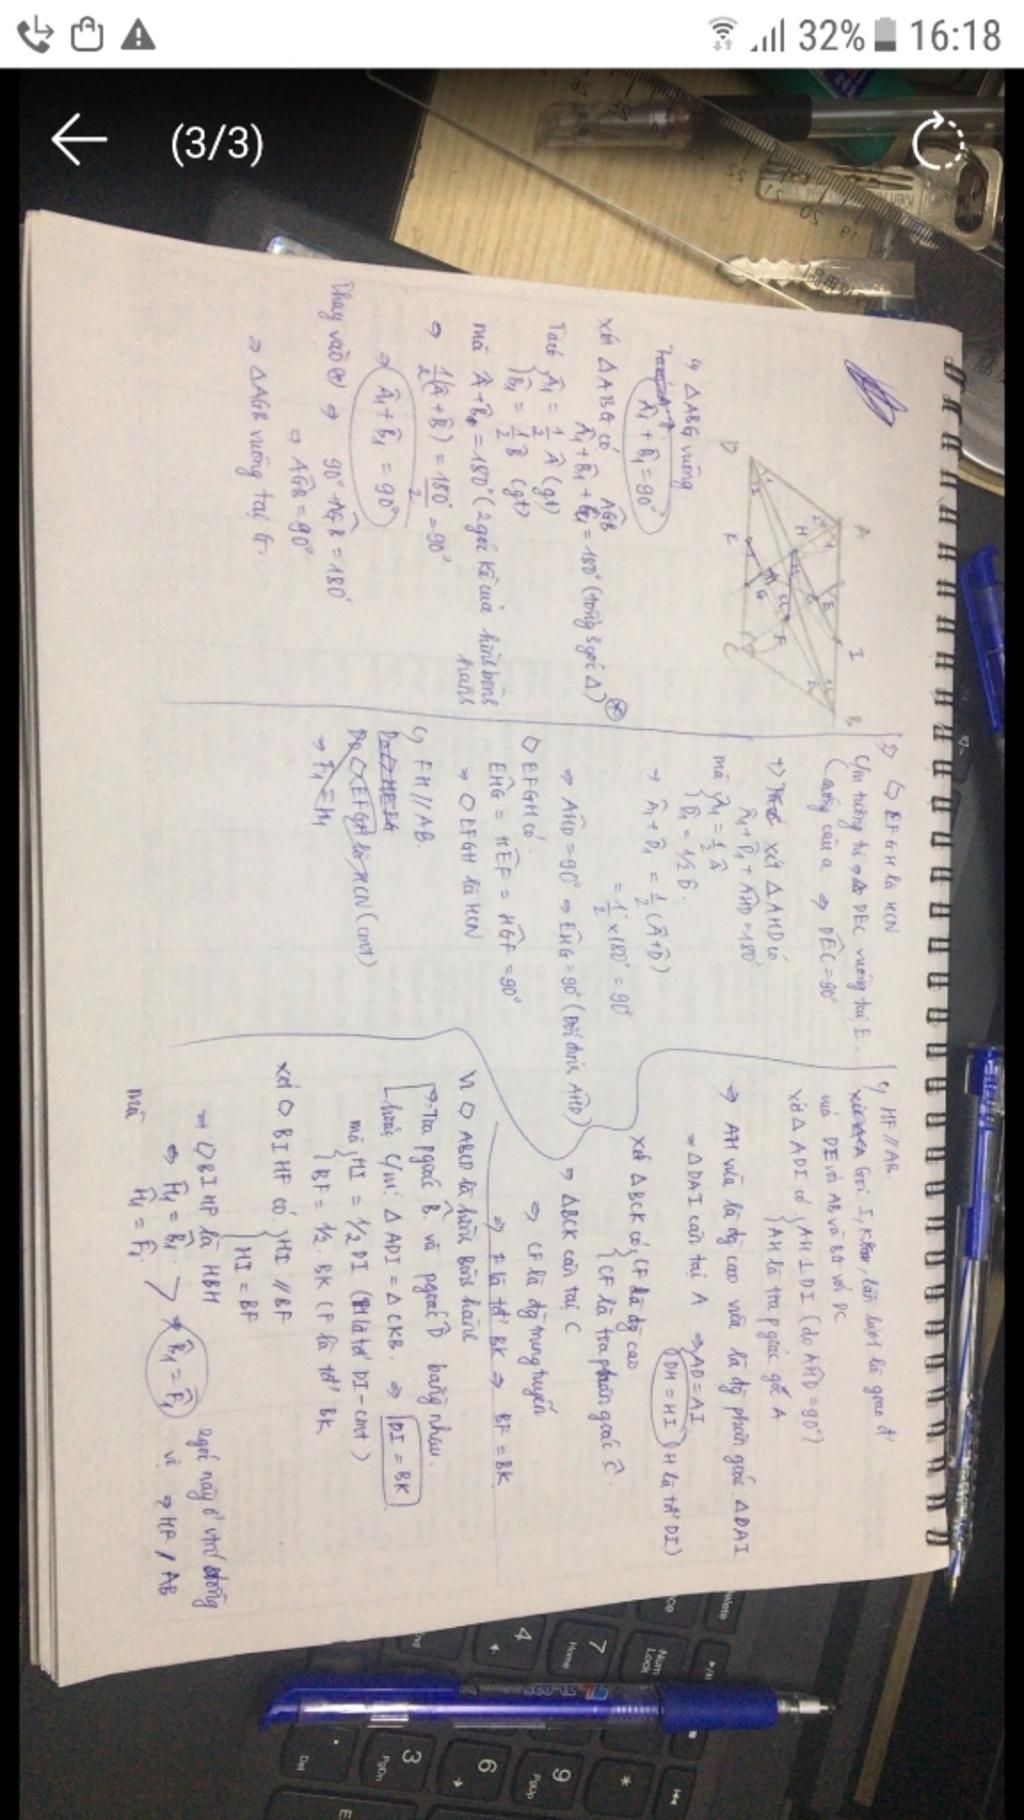 32% 16:18
(3/3)
↳ △ABG vuông
Â₁ + B̂₁ = 90°
xét △ABG có
Â₁ + B̂₁ + AĜB = 180° (tổng 3 góc △) ⊛
Ta có { Â₁ = 1/2 Â (gt)
B̂₁ = 1/2 B̂ (gt)
mà Â + B̂ = 180° (2 góc kề của hình bình hành
⇒ 1/2 (Â + B̂) = 180°/2 = 90°
⇒ Â₁ + B̂₁ = 90°
Thay vào ⊛ ⇒ 90° + AĜB = 180°
⇒ AĜB = 90°
⇒ △AGB vuông tại G.
↳ EFGH là HCN
C/m tương tự ⇒ △DEC vuông tại E
(tương câu a ⇒ DÊC = 90°
+) xét △AHD có
Â₁ + D̂₁ + AĤD = 180°
mà { Â₁ = 1/2 Â
D̂₁ = 1/2 D̂.
→ Â₁ + D̂₁ = 1/2 (Â + D̂)
= 1/2 × 180° = 90°
⇒ AĤD = 90° ⇒ EĤG = 90° (Đối đỉnh AĤD)
◇ EFGH có:
EĤG = HÊF = HĜF = 90°
⇒ ◇ EFGH là HCN
↳ FH // AB.
Do ◇ EFGH là HCN (cmt)
⇒ F̂₁ = Ĥ₁
c, HF // AB.
Gọi I, K lần lượt là giao đ'
của DE với AB và BG với DC
xét △ADI có { AH ⊥ DI (do AĤD = 90°)
AH là tia p giác góc A
⇒ AH vừa là đg cao vừa là đg phân giác △DAI
⇒ △DAI cân tại A ⇒ AD = AI
DH = HI (H là tđ' DI)
xét △BCK có { CF là đg cao
CF là tia phân giác Ĉ.
⇒ △BCK cân tại C
⇒ CF là đg trung tuyến
⇒ F là tđ' BK ⇒ BF = BK
Vì ◇ ABCD là hình bình hành
⇒ Tia pgiác B̂ và pgiác D̂ bằng nhau.
hoặc C/m: △ADI = △CKB. ⇒ DI = BK
mà { HI = 1/2 DI (H là tđ' DI - cmt)
BF = 1/2 . BK (F là tđ' BK
xét ◇ BIHF có { HI // BF
HI = BF
⇒ ◇ BIHF là HBH
⇒ Ĥ₁ = B̂₁
mà Ĥ₁ = F̂₁
⇒ B̂₁ = F̂₁
2 góc này ở vtrí đồng vị ⇒ HF // AB